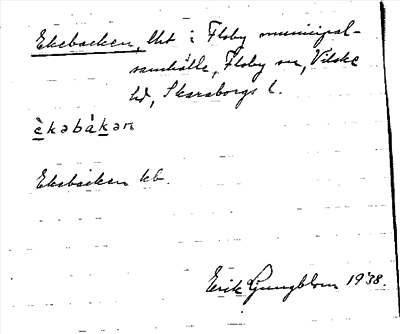 Ekebacken, lht i Floby municipal-
samhälle, Floby sn, Vilske
hd, Skaraborgs l.
è̱kəbàḵən
Ekebacken kb.
Erik Ljungblom 1938.